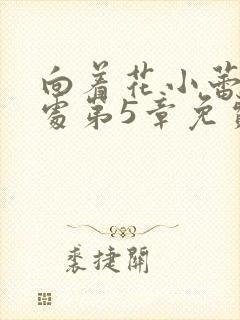 向着花小蕾
处第5章免
裘捷開